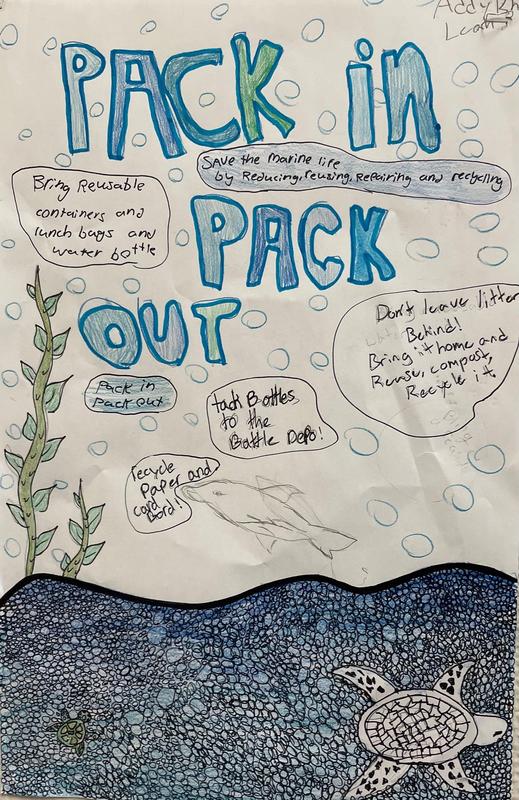 Addy
PACK in
Save the marine life
by Reducing, reusing, Repairing and recycling
Bring Reusable
containers and
lunch bags and
water bottle
PACK
OUT
Don't leave litter
Behind!
Bring it home and
Reuse, compost,
Recycle it.
Pack in
Pack Out
Bottles
to the
Bottle Depo!
recycle
Paper and
card
Bord!!